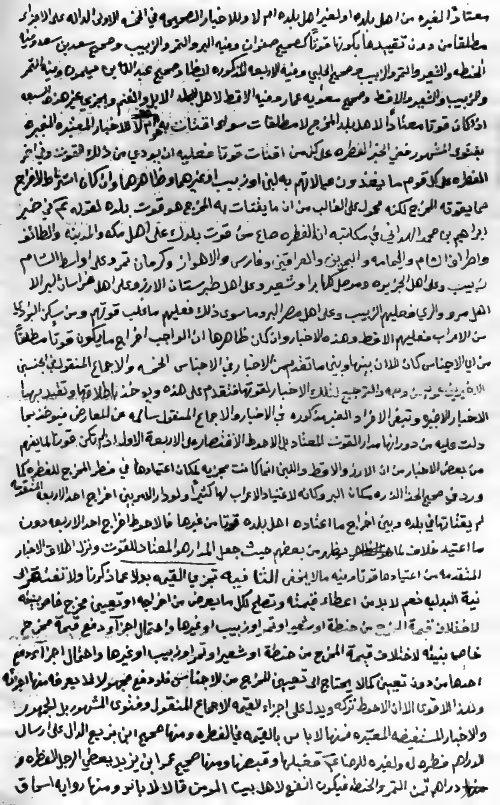 معتاداً لغيره من اهل بلده او لغير اهل بلده ام لا وللاخبار الصحيحة في الخمسة الاولى الدالة على الاجزاء
مطلقا من دون تقييدها بكونها قوتاً كصحيح صفوان وفيه البر والتمر والزبيب وصحيح سعد بن سعد وفيه
الحنطة والشعير والتمر والزبيب وصحيح الحلبي وفيه الاربعة المذكورة ايضا وصحيح عبد الله بن ميمون وفيه التمر
والزبيب والشعير والاقط وصحيح معاوية بن عمار وفيه الاقط لاهل الابل والغنم ويجزي غير هذه السبعة
اذا كان قوتا معتاداً لاهل بلد المخرج لا مطلقا سواء اقتات به ام لا للاخبار المعتبرة المنجبرة
بفتوى المشهور ففي الخبر الفطرة على كل من اقتات قوتا فعليه ان يؤدي من ذلك القوت وفي اخر
الفطرة على كل قوم ما يغذون عيالاتهم به لبن او زبيب او غيرهما وظاهرهما وان كان اشتراط الاخراج
مما يقوته المخرج لكنه محمول على الغالب من ان ما يقتات به المخرج هو قوت بلده لقوله عم في خبر
ابراهيم بن محمد الهمداني في مكاتبته ان الفطرة صاع من قوت بلدك على اهل مكة والمدينة والطائف
واطراف الشام واليمامة والبحرين والعراقين وفارس والاهواز وكرمان تمر وعلى اوساط الشام
زبيب وعلى اهل الجزيرة وموصل كلها بر او شعير وعلى اهل طبرستان الارز وعلى اهل خراسان البر الا
اهل مرو والري فعليهم الزبيب وعلى اهل مصر البر وما سوى ذلك فعليهم ما غلب قوتهم ومن سكن البوادي
من الاعراب فعليهم الاقط وهذه الاخبار وان كان ظاهرها ان الواجب اخراج ما يكون قوتاً مطلقاً
من اي الاجناس كان الا ان بينها وبين ما تقدم من الاخبار في الاجناس الخمسة والاجماع المنقول في الجنسين
الاخبار الاخيرة وتبقى الافراد الغير مذكورة في الاخبار والاجماع المنقول سالمة عن المعارض فيؤخذ بما
دلت عليه من دورانها مدار القوت المعتاد بل الاحوط الاقتصار على الاربعة الاولة اذا لم تكن قوتا لما يفهم
من بعض الاخبار من ان الارز والاقط واللبن انما كانت مجزية لمكان اعتيادها في قطر المخرج للفطرة كما
ورد في صحيح الحذاء الذرة مكان البر وكأنه لاعتياد الاعراب لها كثيراً ولو دار الامر بين اخراج احد الاربعة المتقدمة
لم يقتاتها في بلده وبين اخراج ما اعتاده اهل بلده قوتاً من غيرها فالاحوط اخراج احد الاربعة دون
ما اعتيد خلافا لما يظهر من بعضهم حيث جعل المدار هو المعتاد للقوت ونزل اطلاق الاخبار
المتقدمة من اعتيادها قوتا وفيه ما لا يخفى الثانية تجزي القيمة بدلا عما ذكرنا ولا تفتقر الى
نية البدلية نعم لا بد من اعطاء قيمته وتصلح لكل ما يعوض من اخراجه او تعيين مخرج خاص بنيته
لاختلاف قيمة المخرج من حنطة او شعير او تمر او زبيب او غيرها واحتمال اجزاء دفع قيمة مخرج
خاص بنيته لاختلاف قيمة المخرج من حنطة او شعير او تمر او زبيب او غيرها واحتمال اجزاء دفع
احدها من دون تعيين كما لا يحتاج الى تعيين المخرج من الاجناس فلو دفع مجهولا لا يعرفه منها اجزأه
وللذر الاقوى الا ان الاحوط تركه ويدل على اجزاء القيمة الاجماع المنقول وفتوى المشهور بل الجمهور
والاخبار المستفيضة المعتبرة فمنها لا باس بالقيمة في الفطرة ومنها صحيح ابن بزيع الدال على ارسال
الدراهم فطرة له ولغيره للرضا عم فقبلها وقبضها ومنها صحيح عمر بن يزيد يعطي الرجل الفطرة
دراهم ثمن التمر والحنطة فيكون انفع لاهل بيت المؤمن قال لا باس ومنها رواية اسحاق